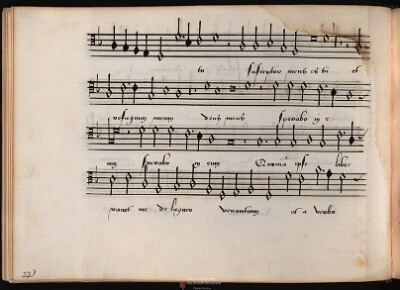 tu susceptor meus es tu et
refugium meum deus meus sperabo in e
um sperabo in eum Quoniā ipse libe
ravit me de laqueo venantium et a verbo